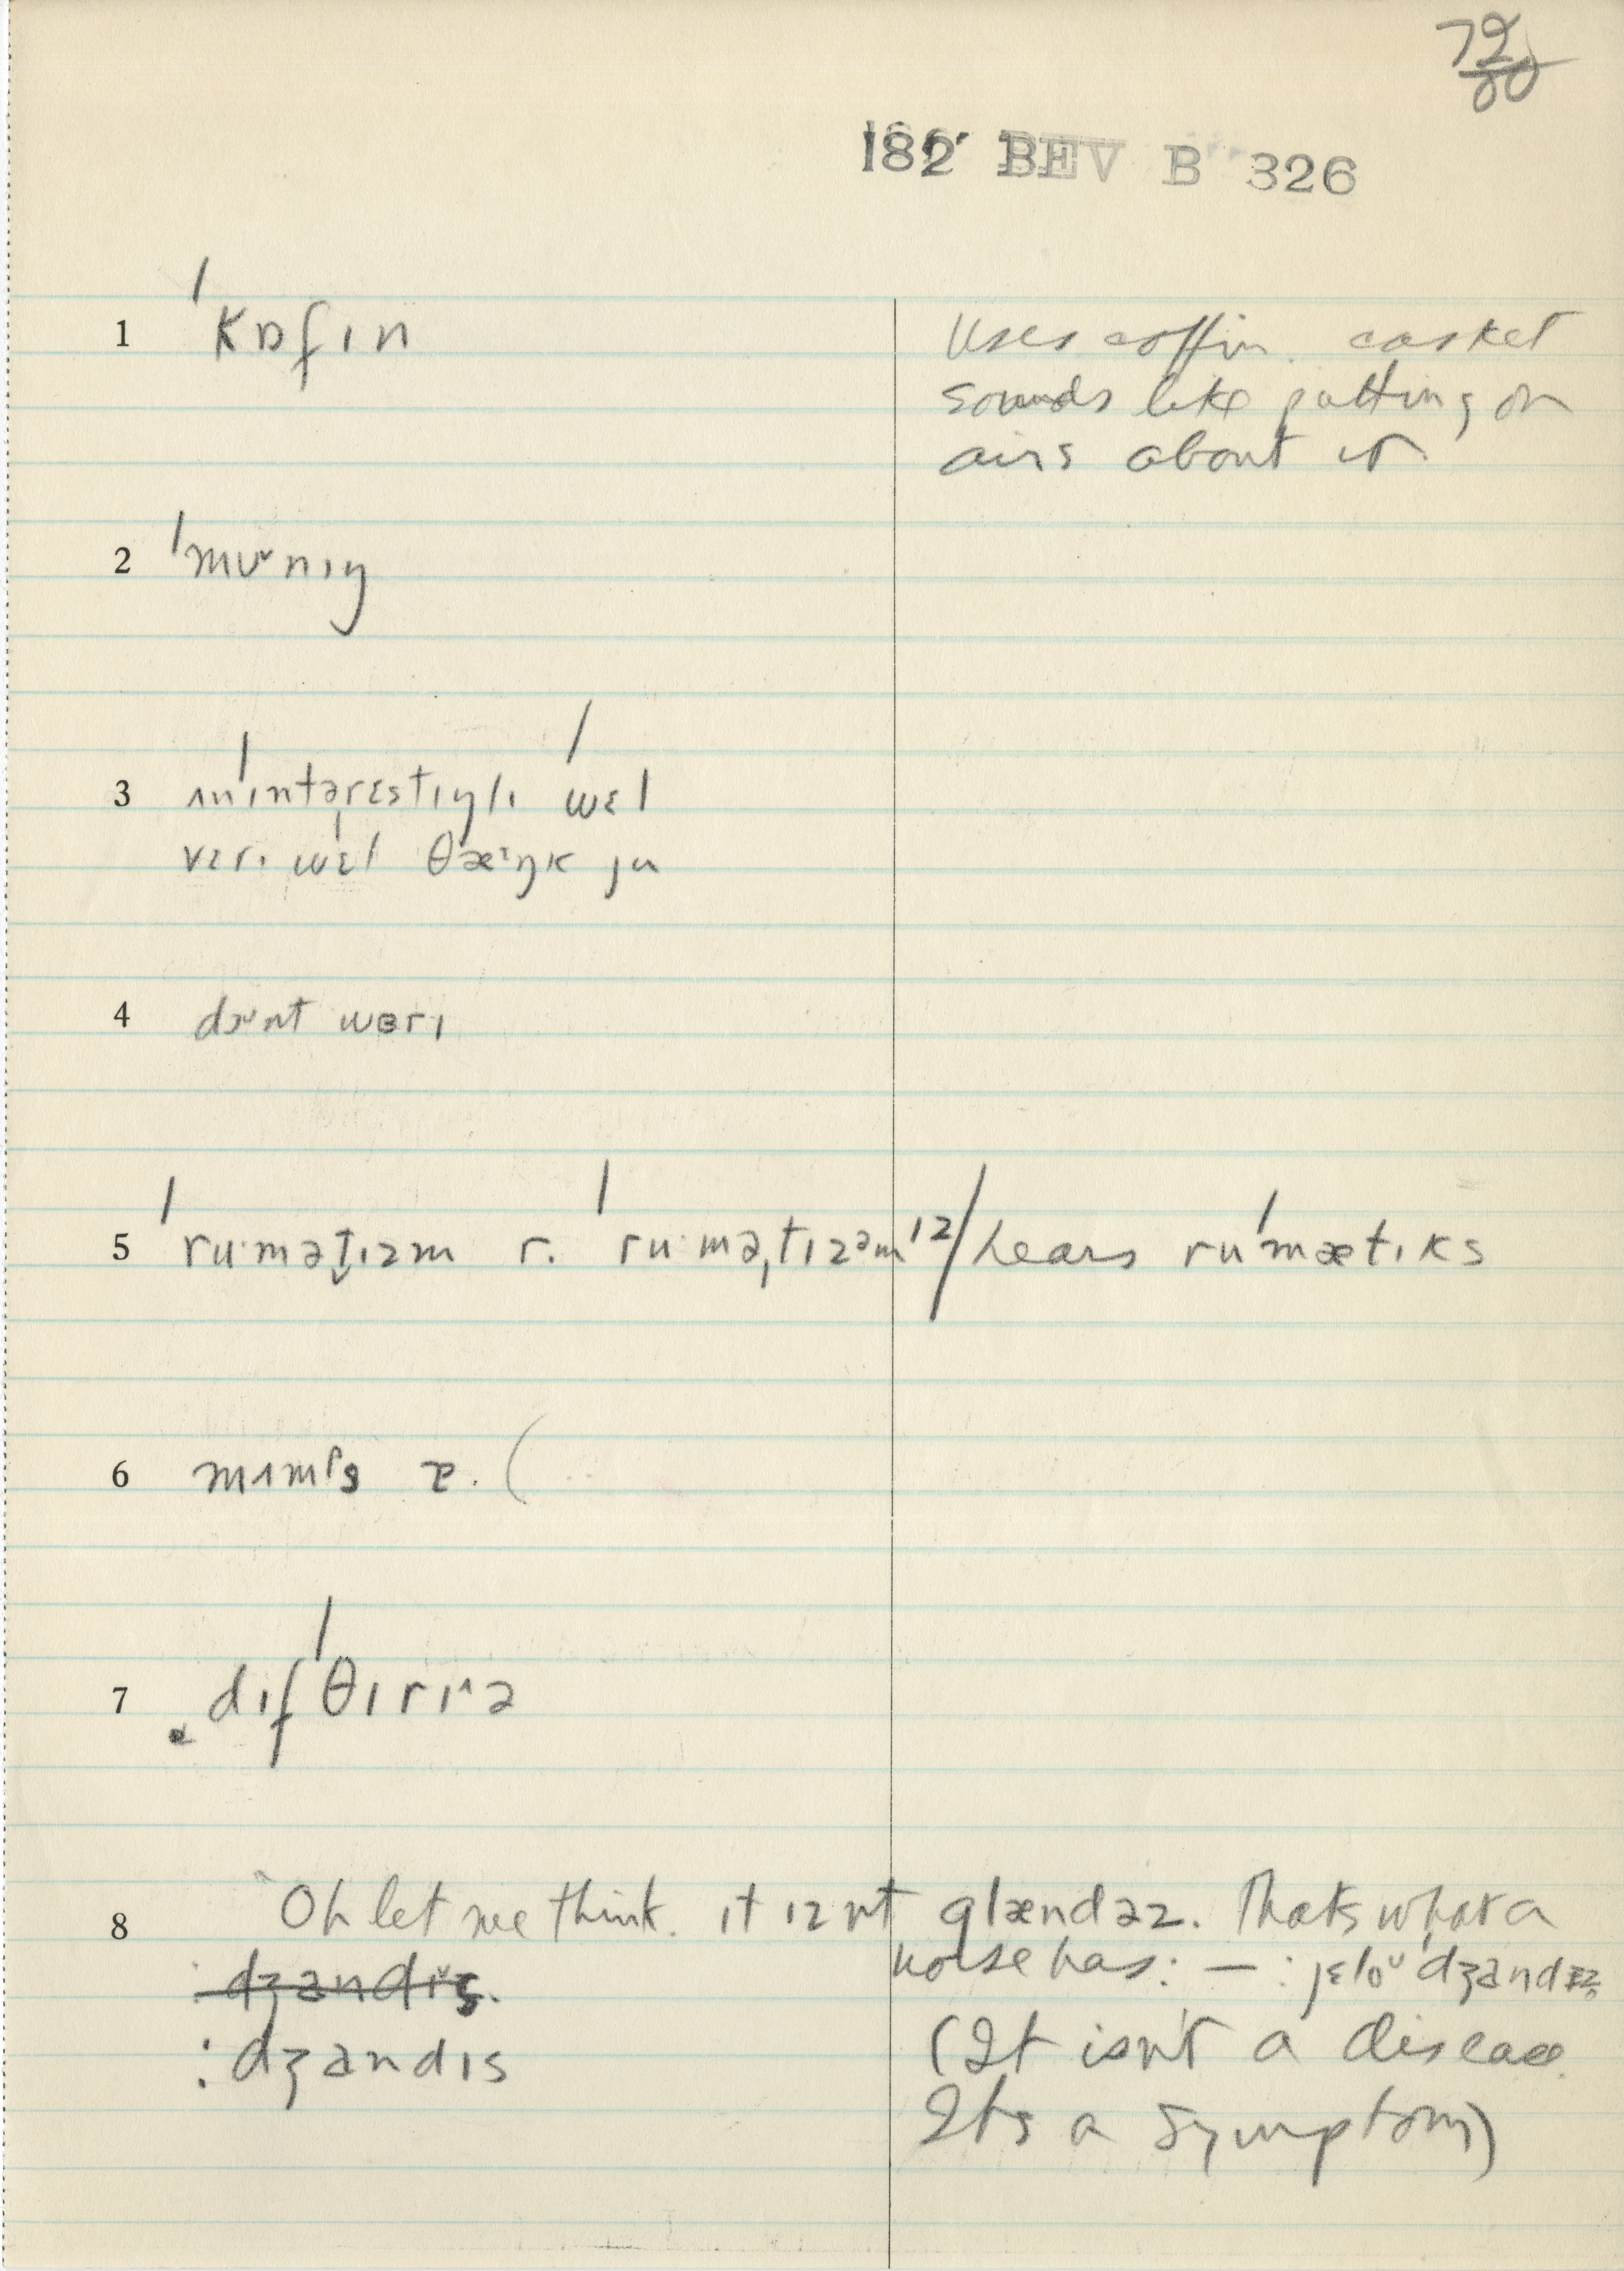 79/80
182 BEV B 326
1 ˈkɒfɪn
Uses coffin. casket
sounds like putting on
airs about it.
2 ˈmʊˇnɪŋ
3 ʌnˈɪntərɛstɪŋlɪ ˈwɛl
vɛrɪ ˈwɛl θæᶦŋk ju
4 wɜrɪ
5 ˈruˑməṭɪzm r. ˈruˑməˌtɪzᵊm 12/hears ruˈmætɪks
6 mʌmᵖs r. (
7 dɪfˈθɪrɪ^ə
8 Oh let me think. ɪt ɪznt glændəz. Thats what a
horse has: — : jɛloᵛ ˈdʒandɪz
dʒandɪs.
: dʒandɪs
(It isn't a disease.
Its a symptom)